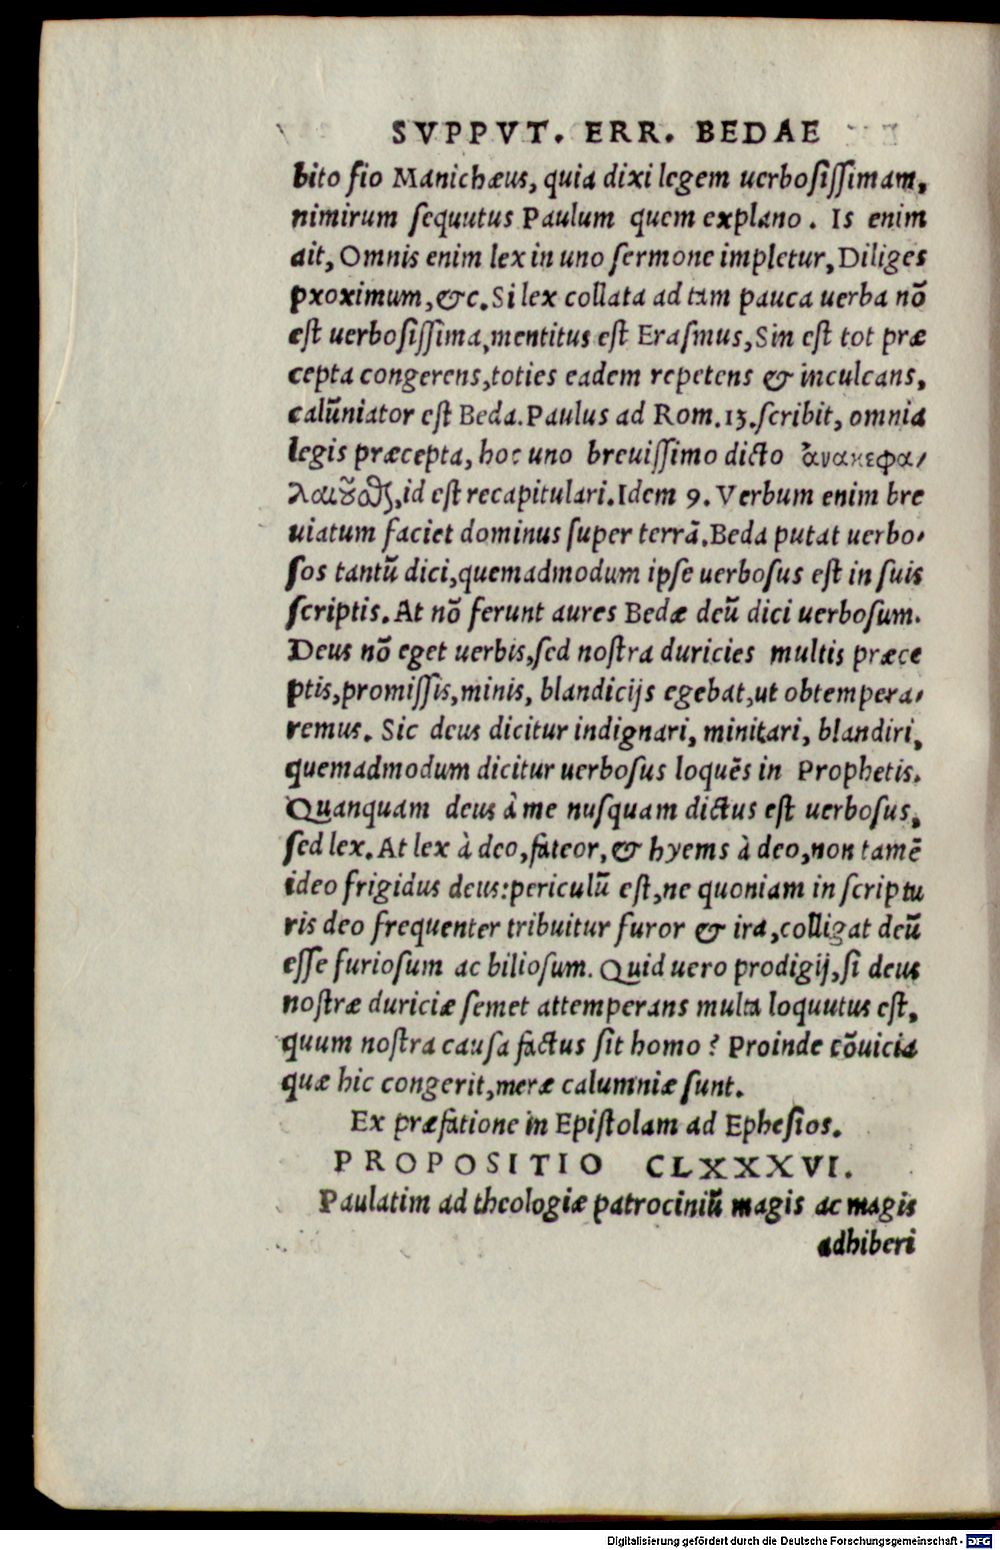 SVPPVT. ERR. BEDAE
bito fio Manichæus, quia dixi legem uerbosissimam,
nimirum sequutus Paulum quem explano. Is enim
ait, Omnis enim lex in uno sermone impletur, Diliges
pxoximum, &c. Si lex collata ad tam pauca uerba nō
est uerbosissima, mentitus est Erasmus, Sin est tot præ
cepta congerens, toties eadem repetens & inculcans,
calūniator est Beda. Paulus ad Rom. 13. scribit, omnia
legis præcepta, hoc uno breuissimo dicto ἀνακεφα/
λαιοῦσθαι, id est recapitulari. Idem 9. Verbum enim bre
uiatum faciet dominus super terrā. Beda putat uerbo/
sos tantū dici, quemadmodum ipse uerbosus est in suis
scriptis. At nō ferunt aures Bedæ deū dici uerbosum.
Deus nō eget uerbis, sed nostra duricies multis præce
ptis, promissis, minis, blandicijs egebat, ut obtempera/
remus. Sic deus dicitur indignari, minitari, blandiri,
quemadmodum dicitur uerbosus loquēs in Prophetis.
Quanquam deus à me nusquam dictus est uerbosus,
sed lex. At lex à deo, fateor, & hyems à deo, non tamē
ideo frigidus deus: periculū est, ne quoniam in scriptu
ris deo frequenter tribuitur furor & ira, colligat deū
esse furiosum ac biliosum. Quid uero prodigij, si deus
nostræ duriciæ semet attemperans multa loquutus est,
quum nostra causa factus sit homo? Proinde cōuicia
quæ hic congerit, meræ calumniæ sunt.
Ex præfatione in Epistolam ad Ephesios.
PROPOSITIO CLXXXVI.
Paulatim ad theologiæ patrociniū magis ac magis
adhiberi
Digitalisierung gefördert durch die Deutsche Forschungsgemeinschaft - DFG